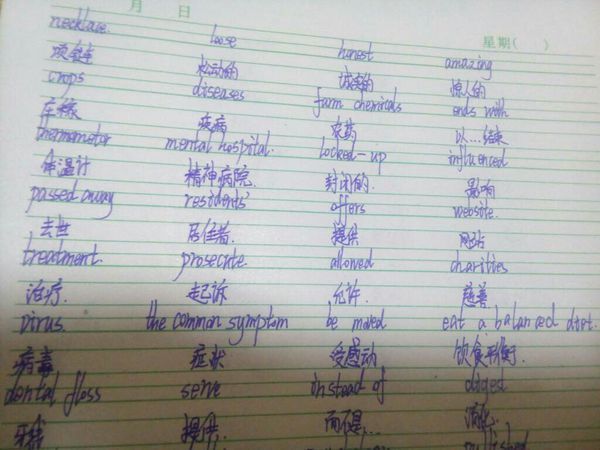 月 日
星期( )
necklace. loose honest amazing
项链 松动的 诚实的 惊人的
crops diseases farm chemicals ends with
庄稼 疾病 农药 以...结束
thermometer mental hospital. locked-up influenced
体温计 精神病院. 封闭的. 影响
passed away residents' offers website.
去世 居住者. 提供 网站
treatment. prosecute. allowed charities
治疗. 起诉 允许. 慈善
virus. the common symptom be moved eat a balanced diet.
病毒 症状 受感动 饮食平衡.
dental floss serve instead of digest
牙线 提供. 而不是... 消化.